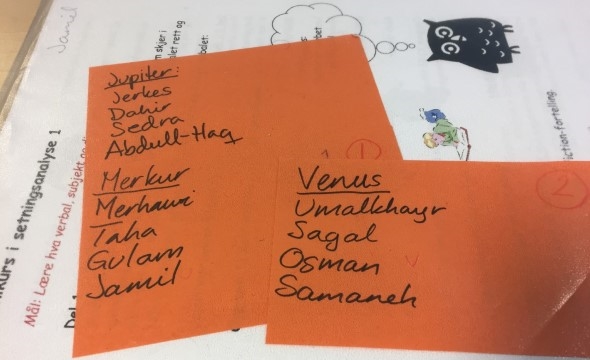 Jamil
Jupiter:
Jerkes
Dahir
Sedra
Abdull-Haq
1
Merkur
Merhawi
Taha
Gulam
Jamil
Venus
2
Umalkhayr
Sagal
Osman
Samaneh
kurs i setningsanalyse 1
Mål: Lære hva verbal, subjekt
Del 1
m skjer i
alet rett og
balet.
iction-fortelling.